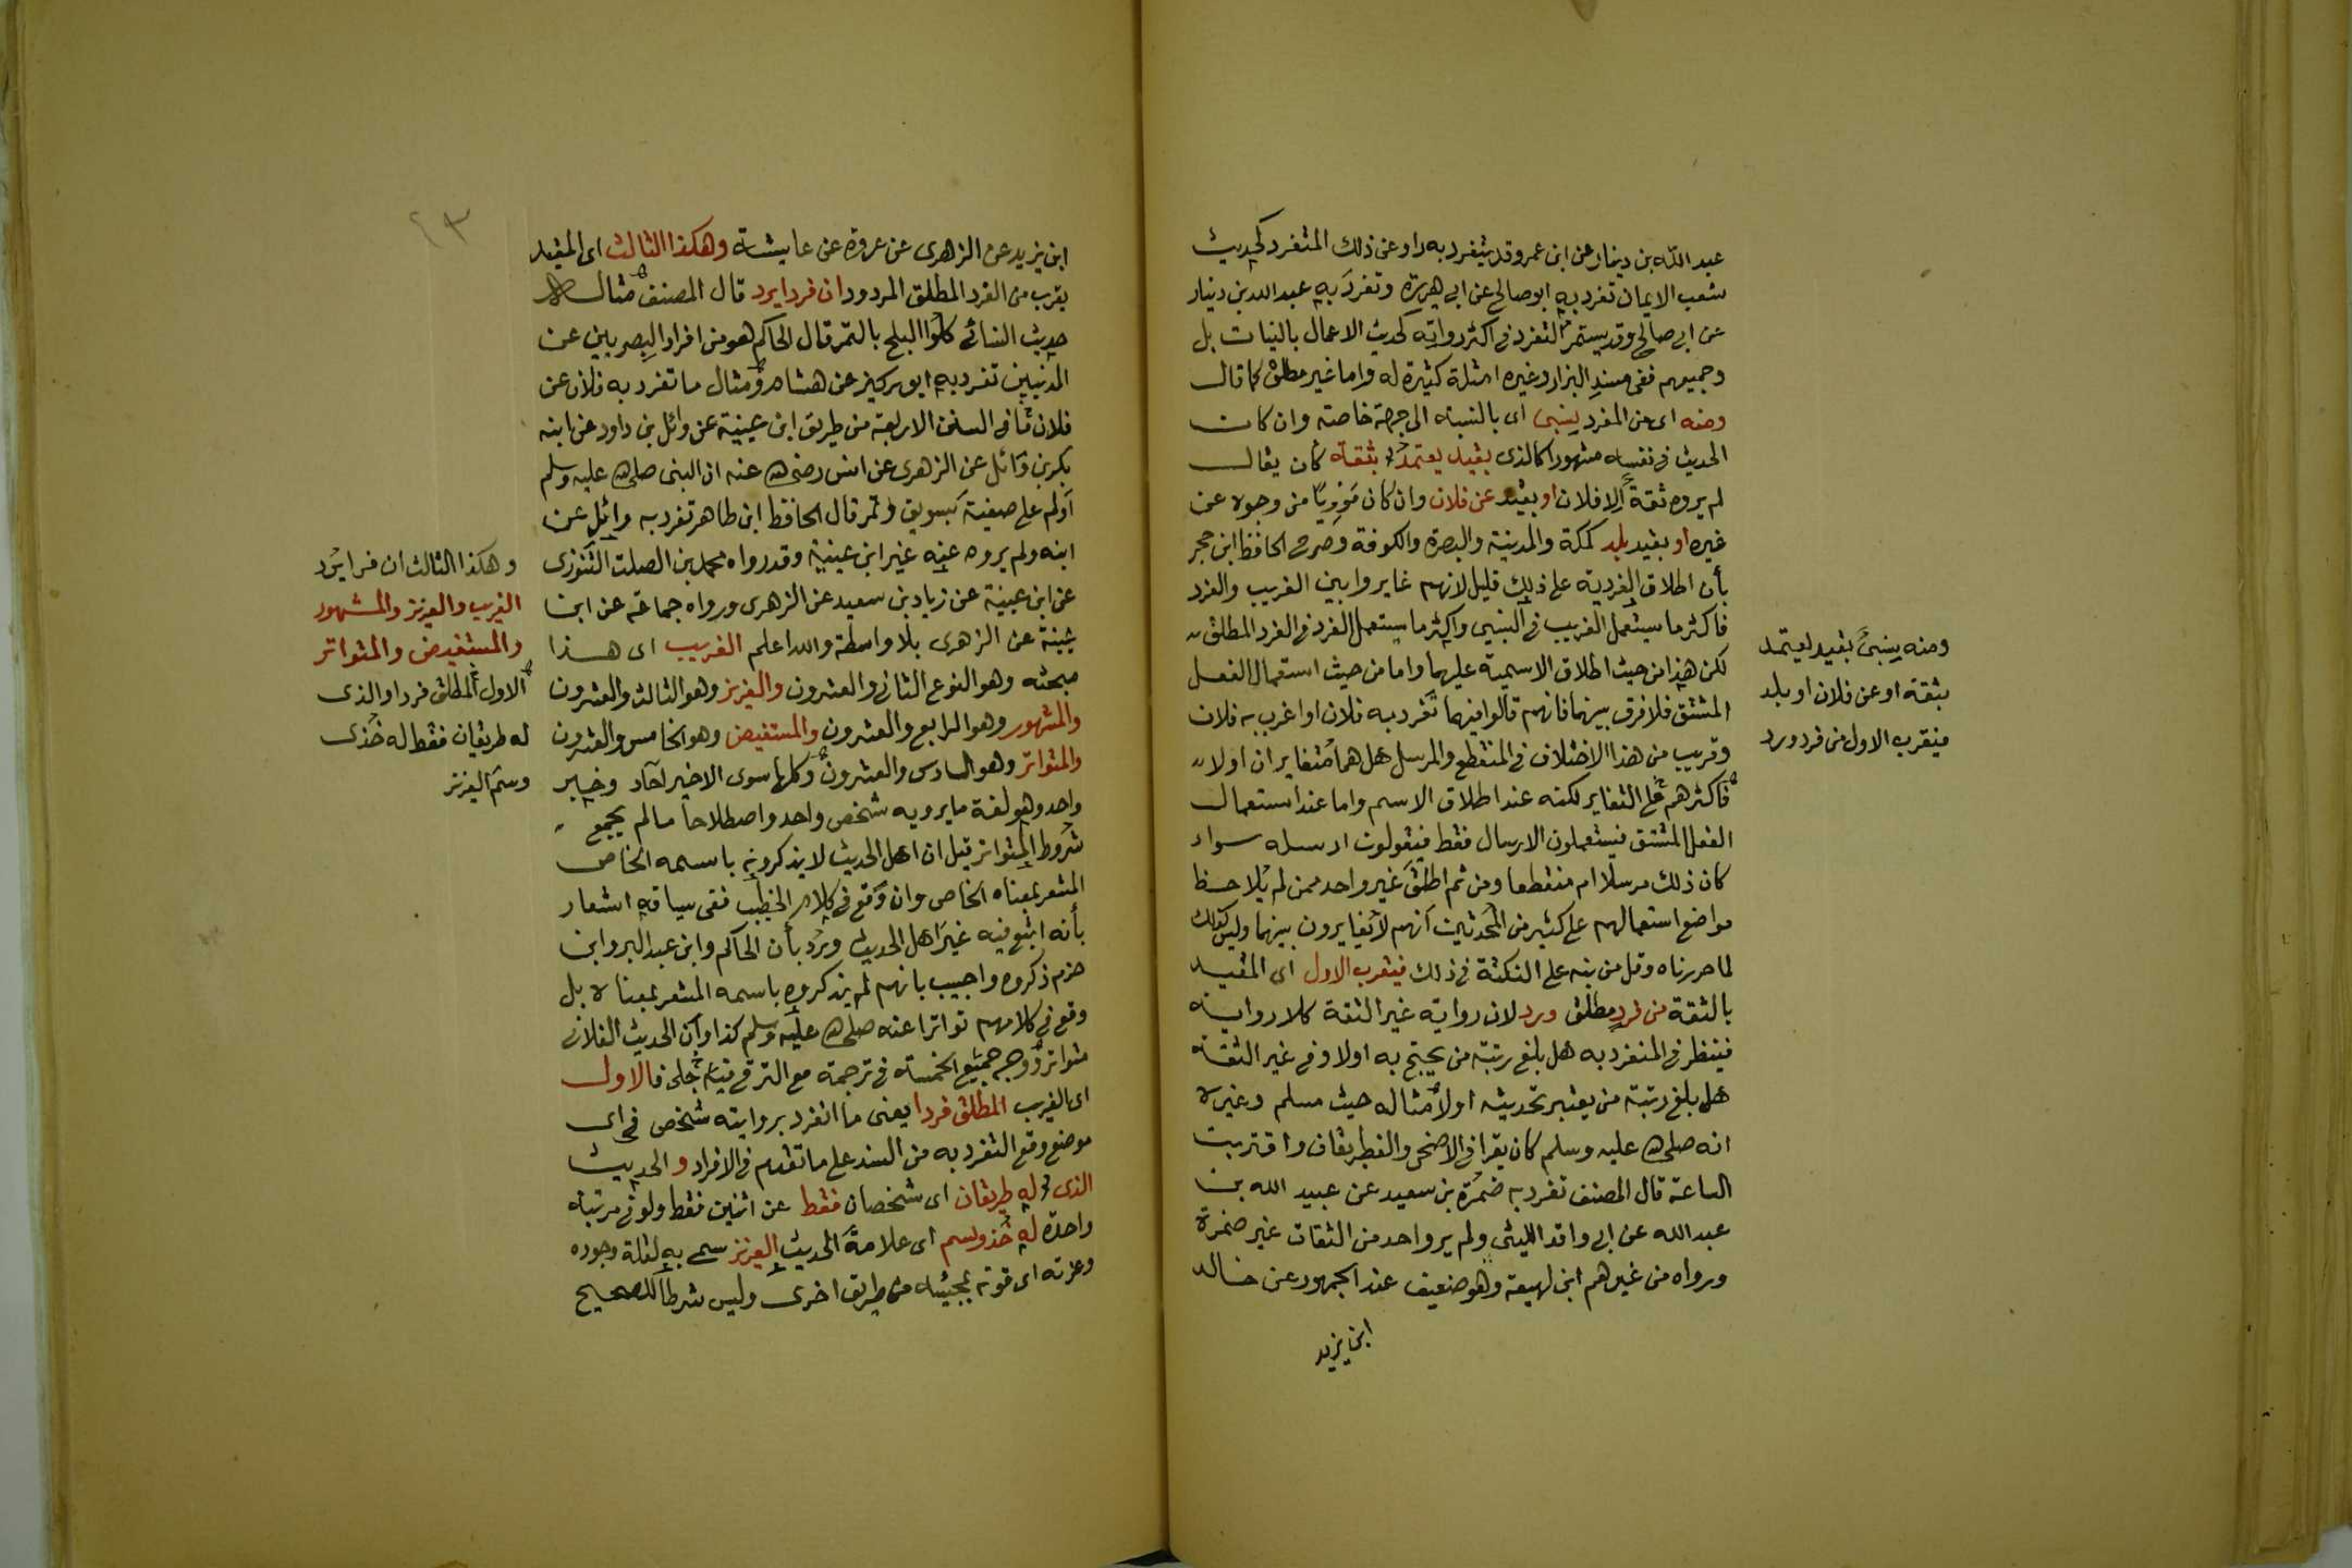 عبد الله بن دينار عن ابن عمر وقد ينفرد به راو عن ذلك المتفرد كحديث
شعب الايمان تفرد به ابو صالح عن ابي هريرة وتفرد به عبد الله بن دينار
عن ابي صالح وقد يستمر التفرد في اكثر رواته كحديث الاعمال بالنيات بل
وجميعهم ففي مسند البزار وغيره امثلة كثيرة له واما غير مطلق كما قال
ومنه اى من المفرد ينبى اى بالنسبة الى جهة خاصة وان كان
الحديث في نفسه مشهورا كالذى بقيد يعتمد بثقة كان يقال
لم يروه ثقة الا فلان او بقيد عن فلان وان كان مرويا من وجوه عن
غيره او بقيد بلد كمكة والمدينة والبصرة والكوفة وصرح الحافظ ابن حجر
بأن اطلاق الفردية على ذلك قليل لانهم غايروا بين الغريب والفرد
فاكثر ما يستعمل الغريب في النسبي واكثر ما يستعمل الفرد في الفرد المطلق
لكن هذا من حيث اطلاق الاسمية عليهما واما من حيث استعمال الفعل
المشتق فلا فرق بينهما فانهم قالوا فيهما تفرد به فلان او اغرب به فلان
وقريب من هذا الاختلاف في المنقطع والمرسل هل هما متغايران اولا
فاكثرهم على التغاير لكنه عند اطلاق الاسم واما عند استعمال
الفعل المشتق فيستعملون الارسال فقط فيقولون ارسله سواء
كان ذلك مرسلا ام منقطعا ومن ثم اطلق غير واحد ممن لم يلاحظ
مواضع استعمالهم على كثير من المحدثين انهم لا يغايرون بينهما وليس كذلك
لما حررناه وقل من نبه على النكتة في ذلك فيقرب الاول اى المقيد
بالثقة من فرد مطلق ورد لان رواية غير الثقة كلا رواية
فينظر في المنفرد به هل بلغ رتبة من يحتج به اولا وفي غير الثقة
هل بلغ رتبة من يعتبر بحديثه اولا مثاله حيث مسلم وغيره
انه صلى الله عليه وسلم كان يقرا في الاضحى والفطر بقاف واقتربت
الساعة قال المصنف تفرد به ضمرة بن سعيد عن عبيد الله بن
عبد الله عن ابي واقد الليثي ولم يرو واحد من الثقات غير ضمرة
ورواه من غيرهم ابن لهيعة وهو ضعيف عند الجمهور عن خالد
ابن يزيد
ومنه ينبى بقيد يعتمد
بثقة او عن فلان او بلد
فيقرب الاول من فرد ورد
٤٣
ابن يزيد عن الزهرى عن عروة عن عايشة وهكذا الثالث اى المقيد
يقرب من الفرد المطلق المردود ان فردا يرد قال المصنف مثاله
حديث النسائى كلوا البلح بالتمر قال الحاكم هو من افراد البصريين عن
المدنيين تفرد به ابو زكير عن هشام ومثال ما تفرد به فلان عن
فلان ما في السنن الاربعة من طريق ابن عيينة عن وائل بن داود عن ابنه
بكر بن وائل عن الزهرى عن انس رضى الله عنه ان النبى صلى الله عليه وسلم
اولم على صفية بسويق وتمر قال الحافظ ابن طاهر تفرد به وائل عن
ابنه ولم يروه عنه غير ابن عيينة وقد رواه محمد بن الصلت التوزى
عن ابن عيينة عن زياد بن سعيد عن الزهرى ورواه جماعة عن ابن
عيينة عن الزهرى بلا واسطة والله اعلم الغريب اى هذا
مبحثه وهو النوع الثانى والعشرون والعزيز وهو الثالث والعشرون
والمشهور وهو الرابع والعشرون والمستفيض وهو الخامس والعشرون
والمتواتر وهو السادس والعشرون وكلها سوى الاخير آحاد وخبر
واحد وهو لغة ما يرويه شخص واحد واصطلاحا مالم يجمع
شروط المتواتر قيل ان اهل الحديث لا يذكرونه باسمه الخاص
المشعر بمعناه الخاص وان وقع في كلام الخطيب ففى سياقه اشعار
بأنه اتبع فيه غير اهل الحديث ورد بأن الحاكم وابن عبد البر وابن
حزم ذكروه واجيب بانهم لم يذكروه باسمه المشعر بمعناه بل
وقع في كلامهم تواترا عنه صلى الله عليه وسلم كذا وان الحديث الفلانى
متواتر ووجه جميع الخمسة في ترجمة مع الترقي فيه جلى فالاول
اى الغريب المطلق فردا يعنى ما انفرد بروايته شخص في اى
موضع وقع التفرد به من السند على ما تقدم في الافراد والحديث
الذى له طريقان اى شخصان فقط عن اثنين فقط ولو في مرتبة
واحدة له خذ وسم اى علامة الحديث العزيز سمى به لقلة وجوده
وعزته اى قوته بمجيئه من طريق اخرى وليس شرطا للصحيح
وهكذا الثالث ان فردا يرد
الغريب والعزيز والمشهور
والمستفيض والمتواتر
الاول المطلق فردا والذى
له طريقان فقط له خذى
وسم العزيز